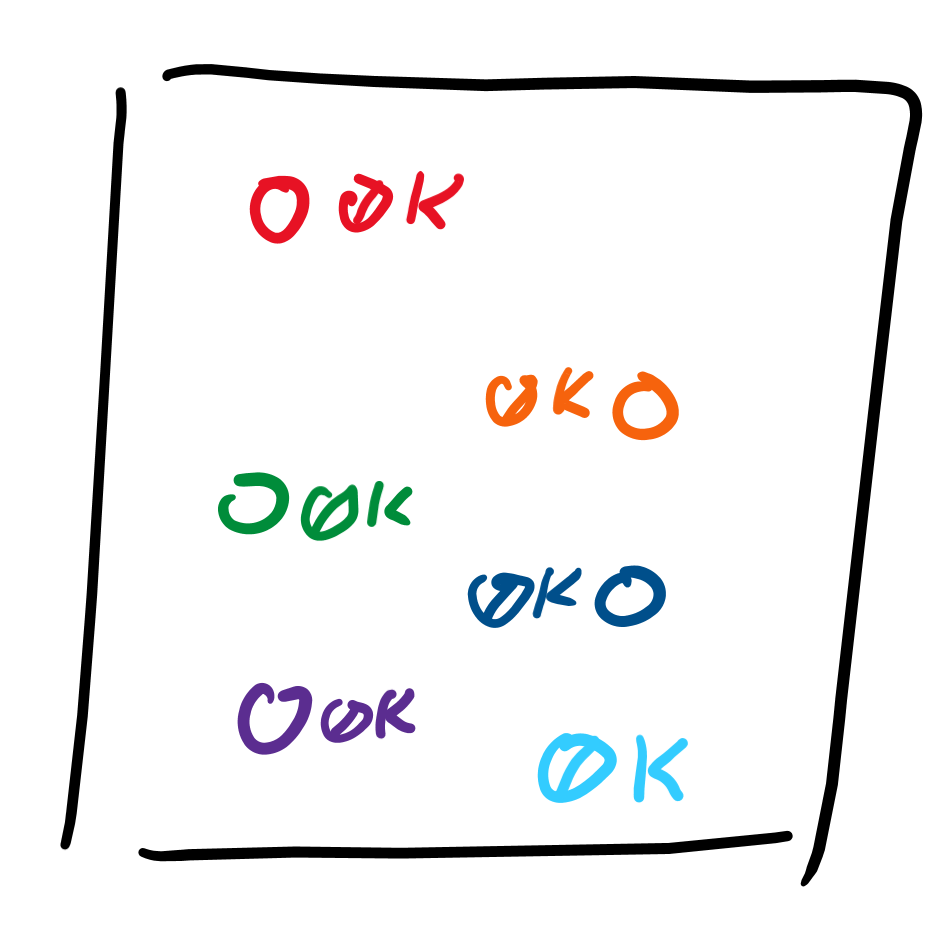 O ØK
ØK O
O ØK
ØK O
O ØK
ØK